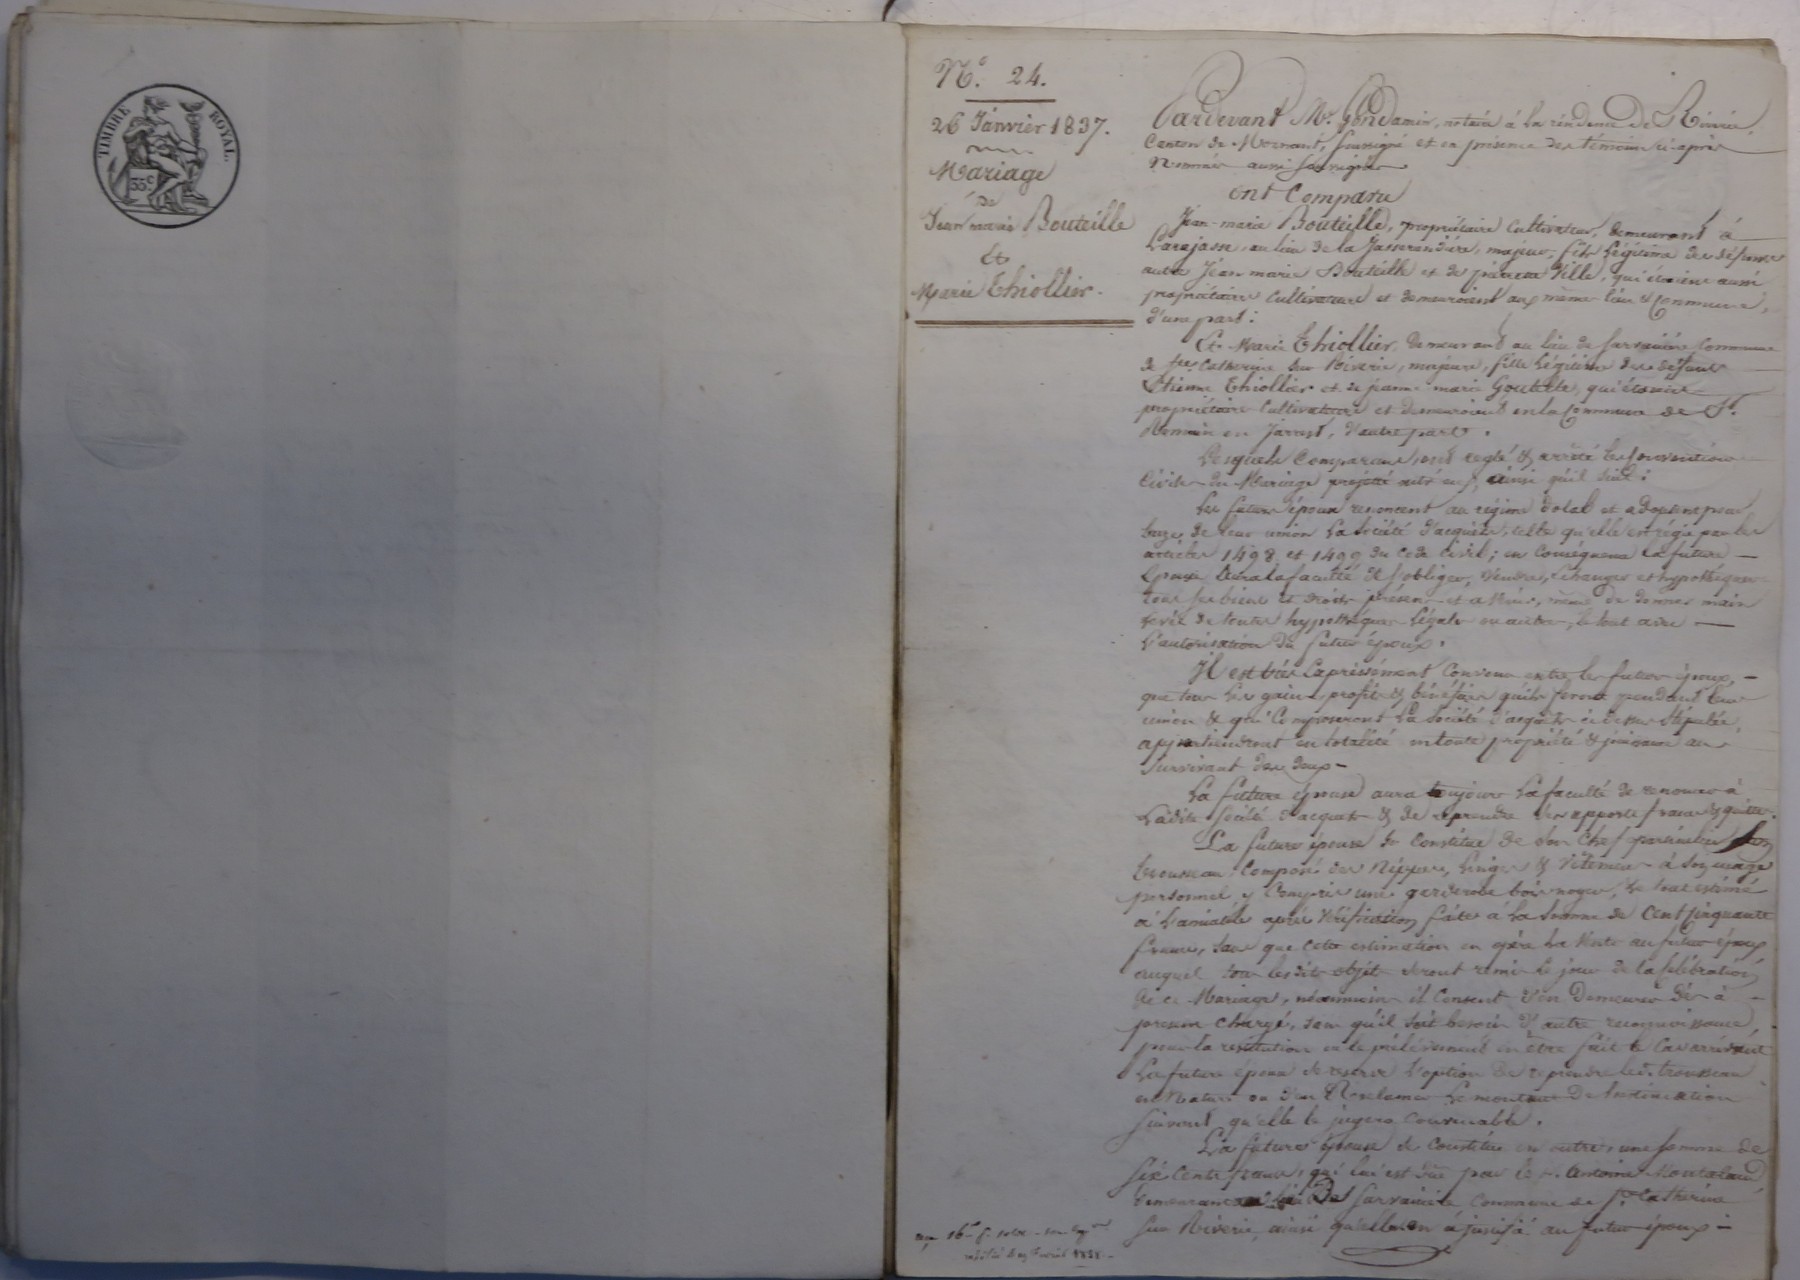 TIMBRE ROYAL.
35c
N.o 24.
26 Janvier 1837.
Mariage
de
Jean marie Bouteille
&
Marie Thiollier.
Pardevant Me. Gondamin, notaire à la résidence de Riverie,
Canton de Mornant, soussigné et en présence des témoins ci-après
Nommés aussi soussignés
ont Comparu
Jean-marie Bouteille, propriétaire Cultivateur, demeurant à
Larajasse, au lieu de la Jasserandière, majeur, fils Légitime des défunts
autre Jean marie Bouteille et de Ville, qui étoient aussi
propriétaires Cultivateurs et demeuroient aux même lieu & Commune,
d'une part:
Et Marie Thiollier, demeurant au lieu de Commune
de Ste Catherine sur Riverie, majeure, fille Légitime des défunts
Etienne Thiollier et de jeanne marie Goutelle, qui étoient
propriétaires Cultivateurs et demeuroient en la Commune de St.
Romain en Jarrest, d'autre part.
Lesquels Comparans, ont réglé & arrêté les Conventions
Civiles du Mariage projetté entr'eux, ainsi qu'il suit:
Les futurs époux renoncent au régime dotal et adoptent pour
baze de leur union La Société d'acquets, telle qu'elle est régie par les
articles 1498 et 1499 du Code Civil; en Conséquence la future
Epouse aura la faculté de s'obliger, vendre, échanger et hypothéquer
tous ses biens et droits présens et à venir, même de donner main
levée de toutes hypothèques Légales ou autres, le tout avec
L'autorisation du futur époux.
Il est très Expressément Convenu entre les futurs époux,
que tous les gains, profits & bénéfices qu'ils feront pendant leur
union & qui Composeront La Société d'acquets ci dessus Stipulée,
appartiendront en totalité en toute propriété & jouissance au
Survivant des deux
La future épouse aura toujours La faculté de renoncer à
Ladite Société d'acquets & de reprendre ses apports francs & quittes.
La future épouse se Constitue de son Chef particulier son
trousseau Composé des Nippes, Linges & Vêtemens à son usage
personnel y Compris une garderobe bois noyer, Le tout estimé
à L'amiable après Vérification faite à La Somme de Cent Cinquante
francs, sans que cette estimation en opère La Vente au futur époux
auquel tous lesdits objets seront remis Le jour de la Célébration
de ce Mariage, néanmoins il Consent d'en Demeurer dès à
présent chargé, sans qu'il soit besoin d'autre reconnoissance,
pour la restitution ou le prélèvement en être fait le Cas arrivant
La future épouse se réserve L'option de reprendre led. trousseau
en Nature ou d'en Réclamer Le montant De l'estimation
suivant qu'elle le jugera Convenable.
La future épouse se Constitue en outre, une Somme de
Six Cents francs, qui lui est dûe par le s. Antoine
demeurant au lieu De Commune de Ste Catherine
sur Riverie, ainsi qu'elle en a justifié au futur époux